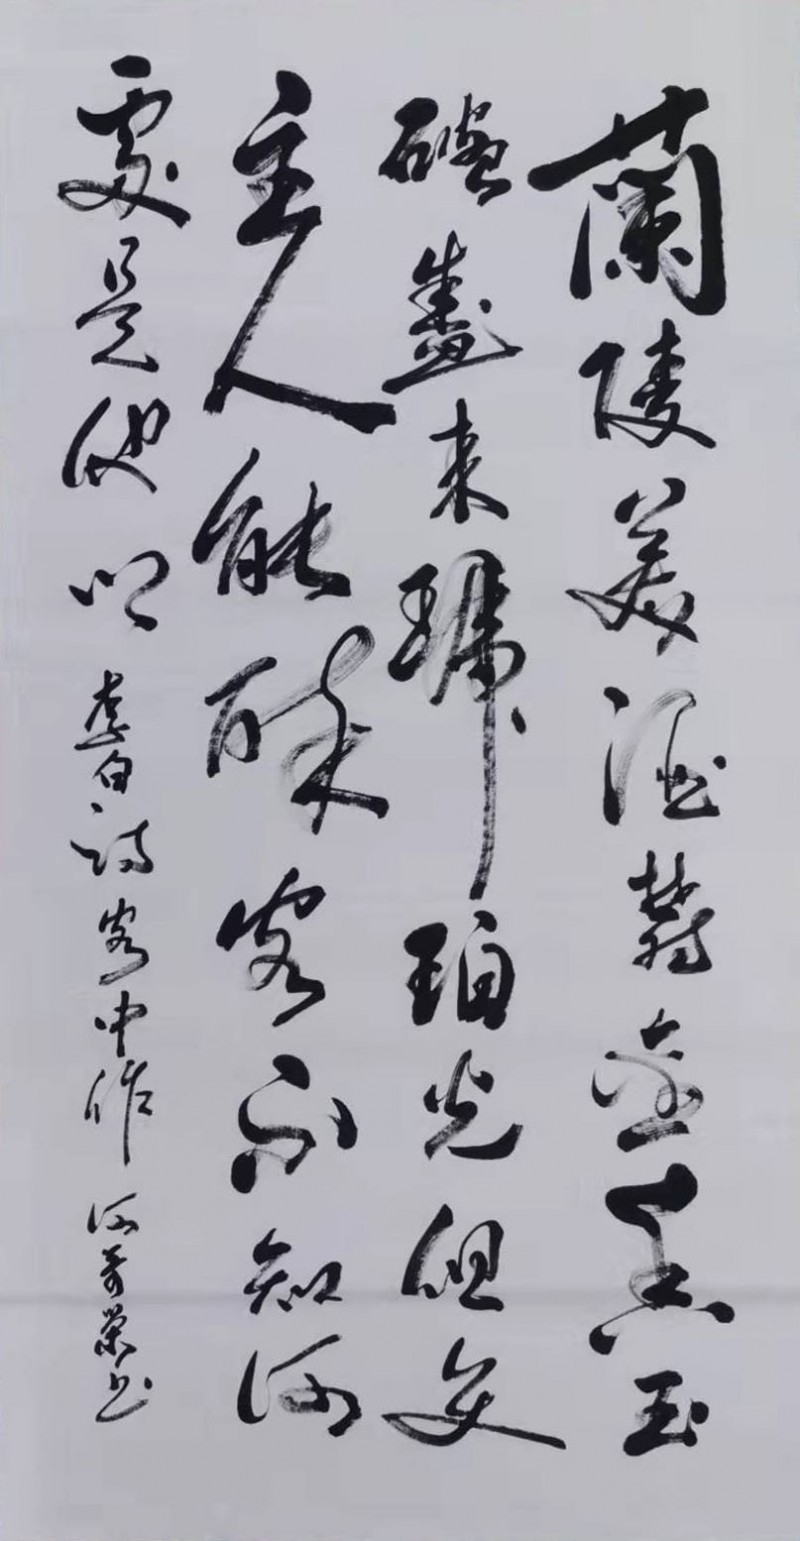 蘭陵美酒鬱金香玉
碗盛來琥珀光但使
主人能醉客不知何
處是他鄉 李白詩客中作 榮书